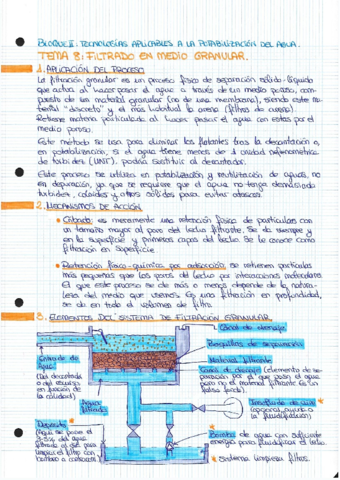 BLOQUE II: TECNOLOGÍAS APLICABLES A LA POTABILIZACIÓN DEL AGUA.
TEMA 8: FILTRADO EN MEDIO GRANULAR.
1. APLICACIÓN DEL PROCESO
La filtración granular es un proceso físico de separación sólido-líquido
que actúa al hacer pasar el agua a través de un medio poroso, com-
puesto de un material granular (no de una membrana), siendo este ma-
terial "discreto" y el más habitual la arena (filtros de arena).
Retiene materia particulada al hacer pasar el agua con estas por el
medio poroso.
Este método se usa para eliminar los flotantes tras la decantación o,
en potabilización, si el agua tiene menos de 1 unidad nefelométrica
de turbidez (UNT), podría sustituir al decantador.
Este proceso se utiliza en potabilización y reutilización de aguas, no
en depuración, ya que se requiere que el agua no tenga demasiada
turbidez, coloides y otros sólidos para evitar atascos.
2. MECANISMOS DE ACCIÓN
Cribado: es meramente una retención física de partículas con
un tamaño mayor al poro del lecho filtrante. Se da siempre y
en la superficie y primeras capas del lecho. Se le conoce como
filtración en superficie.
Retención físico-química por adsorción: se retienen partículas
más pequeñas que los poros del lecho por interacciones moleculares.
El que este proceso se de más o menos depende de la natura-
leza del medio que usemos. Es una filtración en profundidad,
se da en todo el volumen de filtro.
3. ELEMENTOS DEL SISTEMA DE FILTRACIÓN GRANULAR.
Canal de drenaje
Boquillas de separación
Material filtrante
Entrada de
agua
(del decantador
o del
en función de
la calidad)
Capa de drenaje (elemento de se-
paración por el que pasa el agua
pero no el material filtrante. Es un
falso fondo).
Agua
filtrada
(opcional, ayuda a
la fluidificación)
Depósito
(Aquí se pone el
3-5% del agua
filtrada al día para
limpiar el filtro con
bombeo a contracorr.)
Bomba de agua con suficiente
energía para fluidificar el lecho.
* Sistema limpieza filtros.